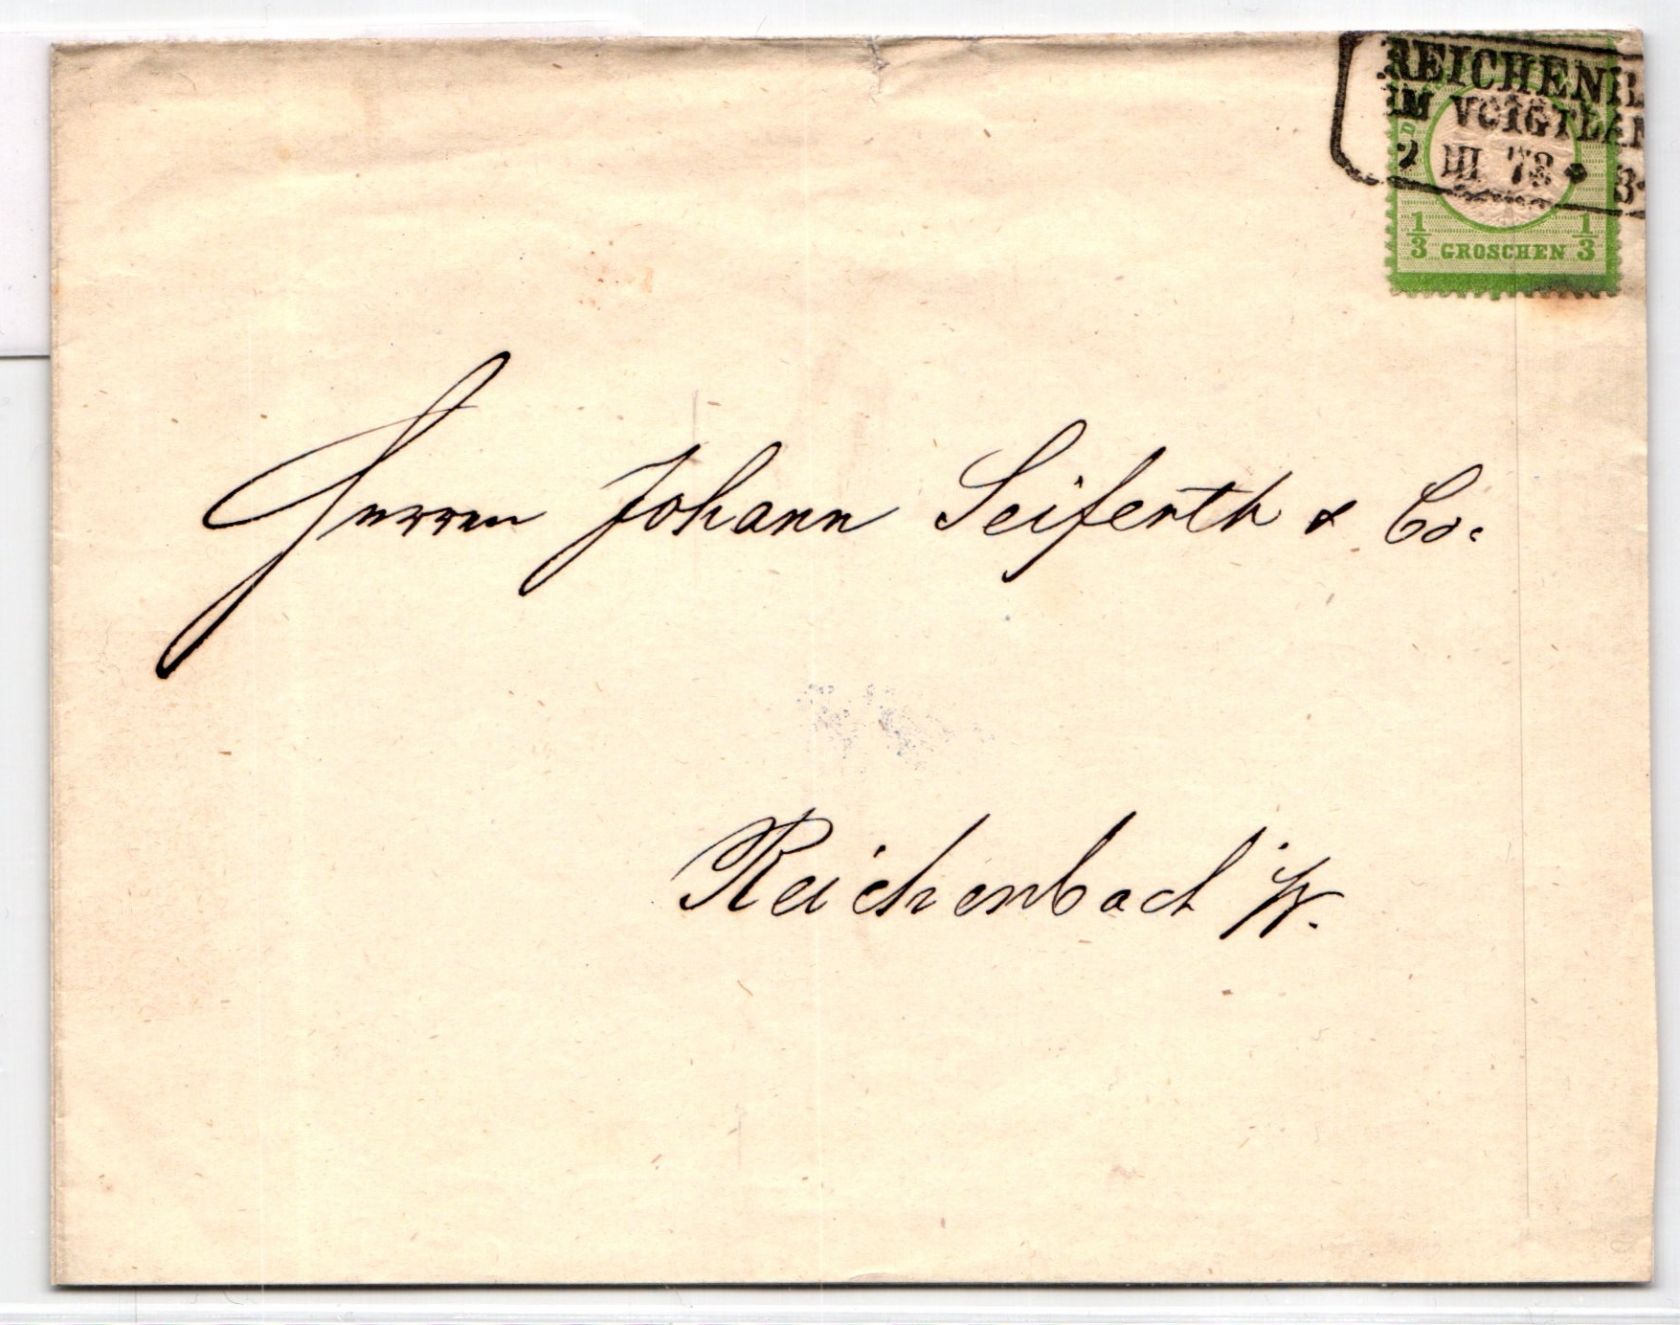 REICHENB
IM VOIGTLAN
2 III 73 * 3
1/3 GROSCHEN 1/3
Herren Johann Seiferth & Co.
Reichenbach i/V.